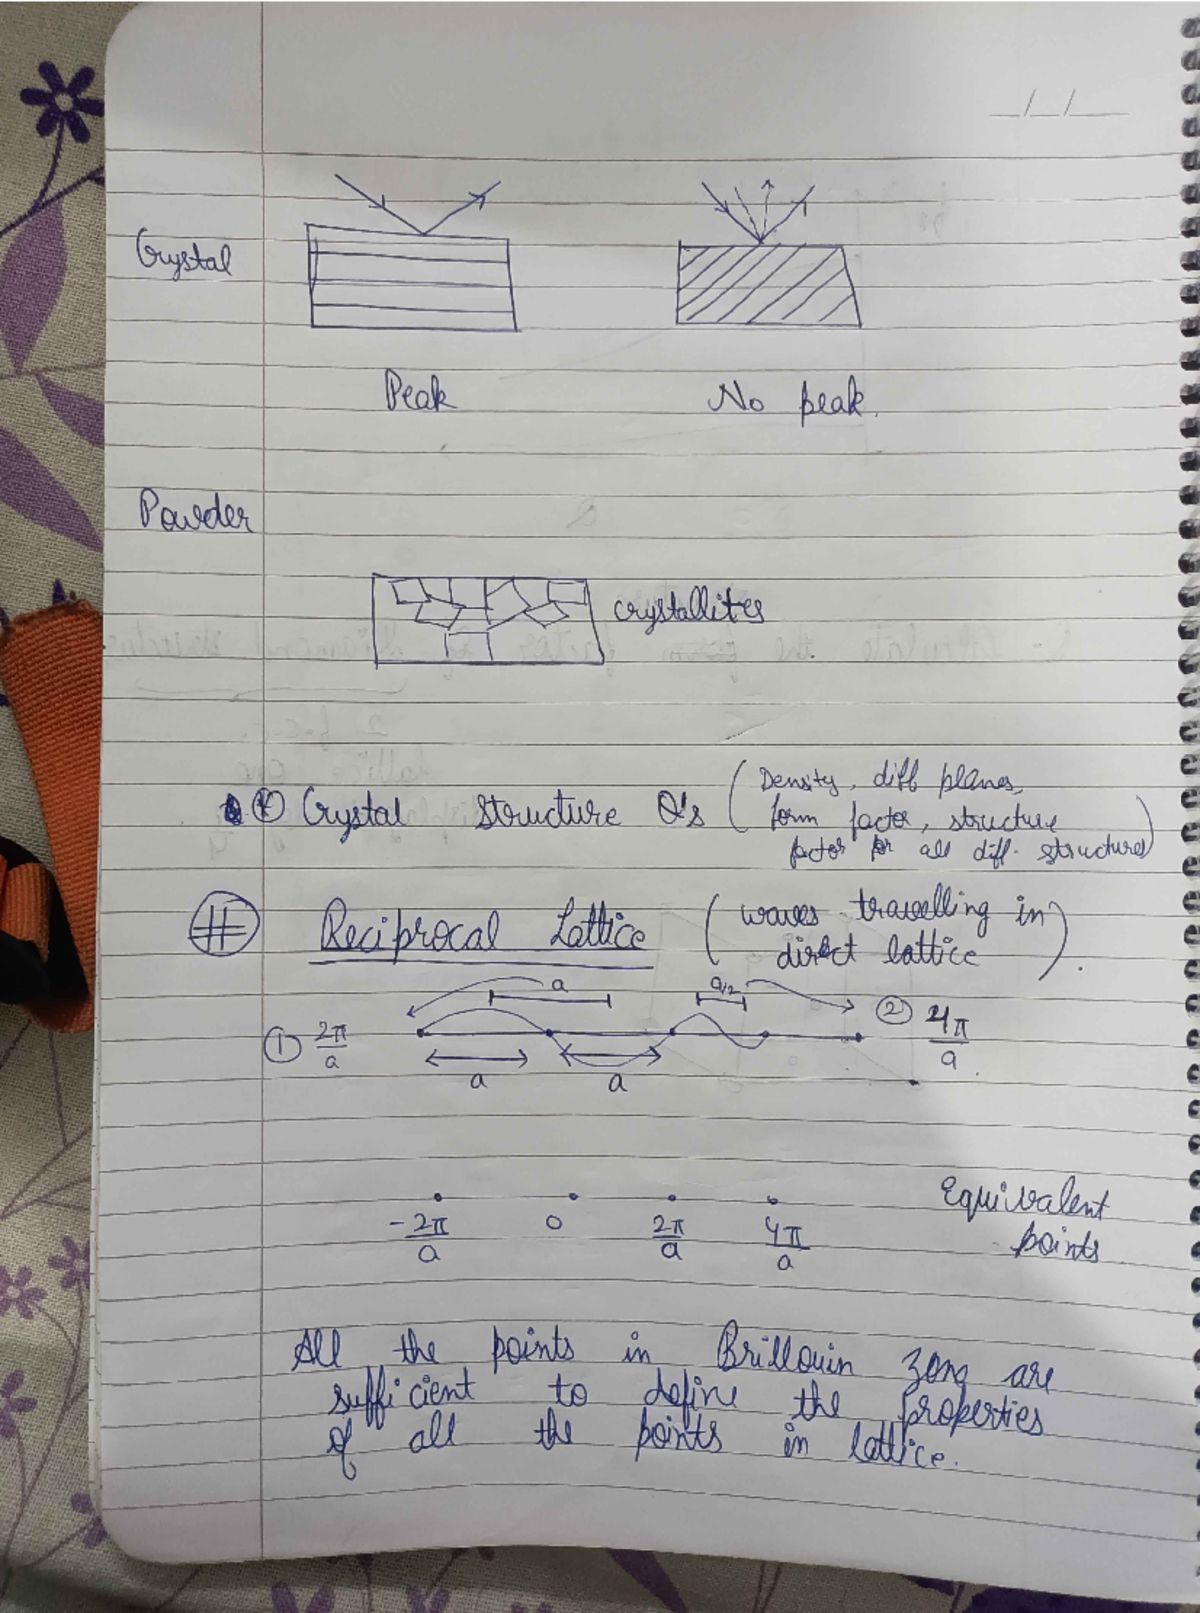 __/__/____
Crystal
Peak
No peak.
Powder
crystallites
Crystal structure Q's (Density, diff planes,
form factor, structure
factor for all diff. structures)
# Reciprocal Lattice (waves travelling in
direct lattice).
a
a/2
① 2π/a
② 4π/a
a
a
-2π/a 0 2π/a 4π/a
Equivalent
points
All the points in Brillouin zone are
sufficient to define the properties
of all the points in lattice.